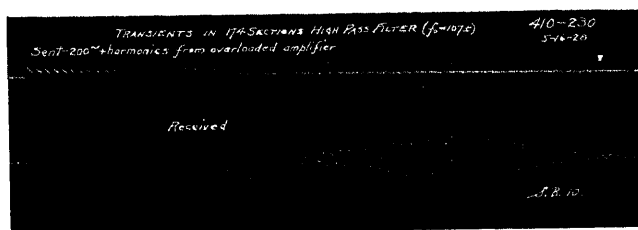 TRANSIENTS IN 174 SECTIONS HIGH PASS FILTER (f₀=107.5)
410-230
Sent-200~+harmonics from overloaded amplifier
5-16-28
Received